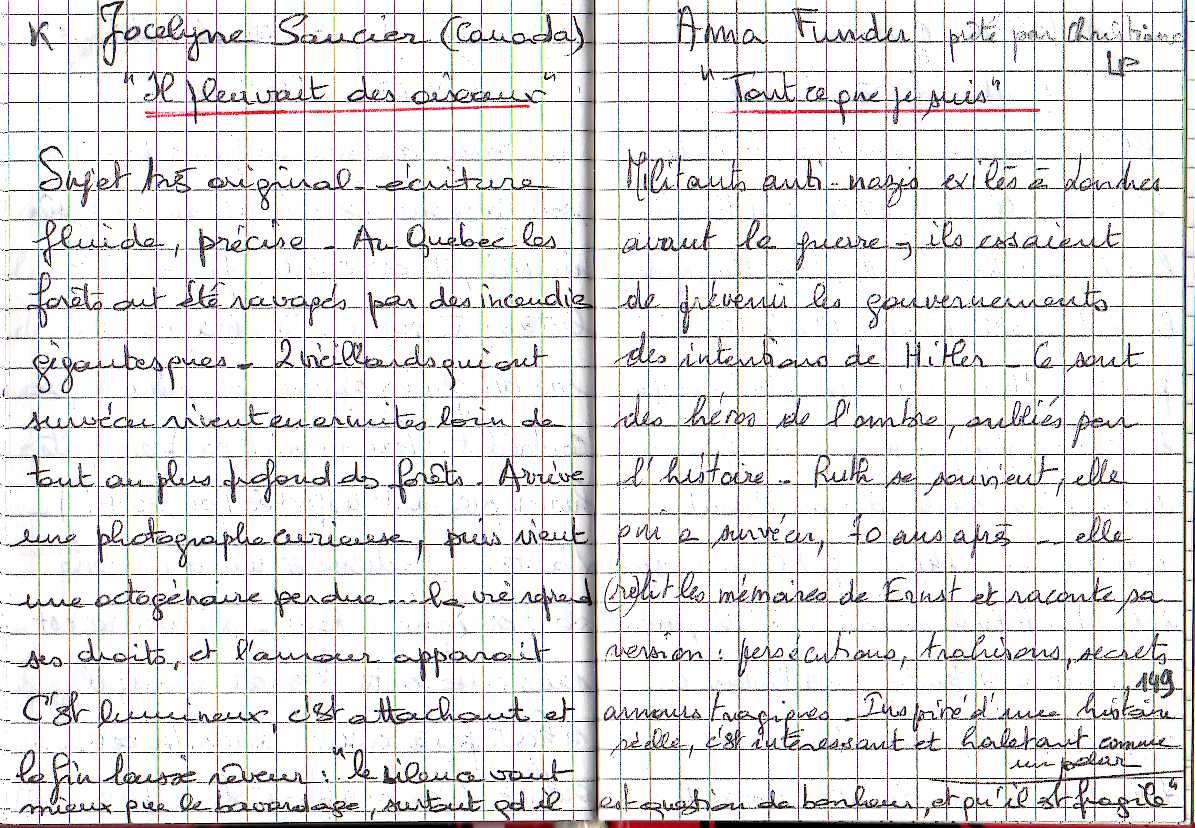 K Jocelyne Saucier (Canada)
"Il pleuvait des oiseaux"
Sujet très original - écriture
fluide, précise - Au Québec les
forêts ont été ravagés par des incendies
gigantesques - 2 vieillards qui ont
survécu vivent en ermites loin de
tout au plus profond des forêts. Arrive
une photographe curieuse, puis vient
une octogénaire perdue... la vie reprend
ses droits, et l'amour apparait
C'est lumineux, c'est attachant et
la fin laisse rêveur : "le silence vaut
mieux que le bavardage, surtout qd il
Anna Funder prêté par Christiane
LP
"Tout ce que je suis"
Militants anti-nazis exilés à Londres
avant la guerre, ils essaient
de prévenir les gouvernements
des intentions de Hitler - Ce sont
des héros de l'ombre, oubliés par
l'histoire - Ruth se souvient, elle
qui a survécu, 70 ans après - elle
(re)lit les mémoires de Ernst et raconte sa
version : persécutions, trahisons, secrets,
149
amours tragiques - Inspiré d'une histoire
réelle, c'est intéressant et haletant comme
un polar
est question de bonheur, et qu'il est fragile"